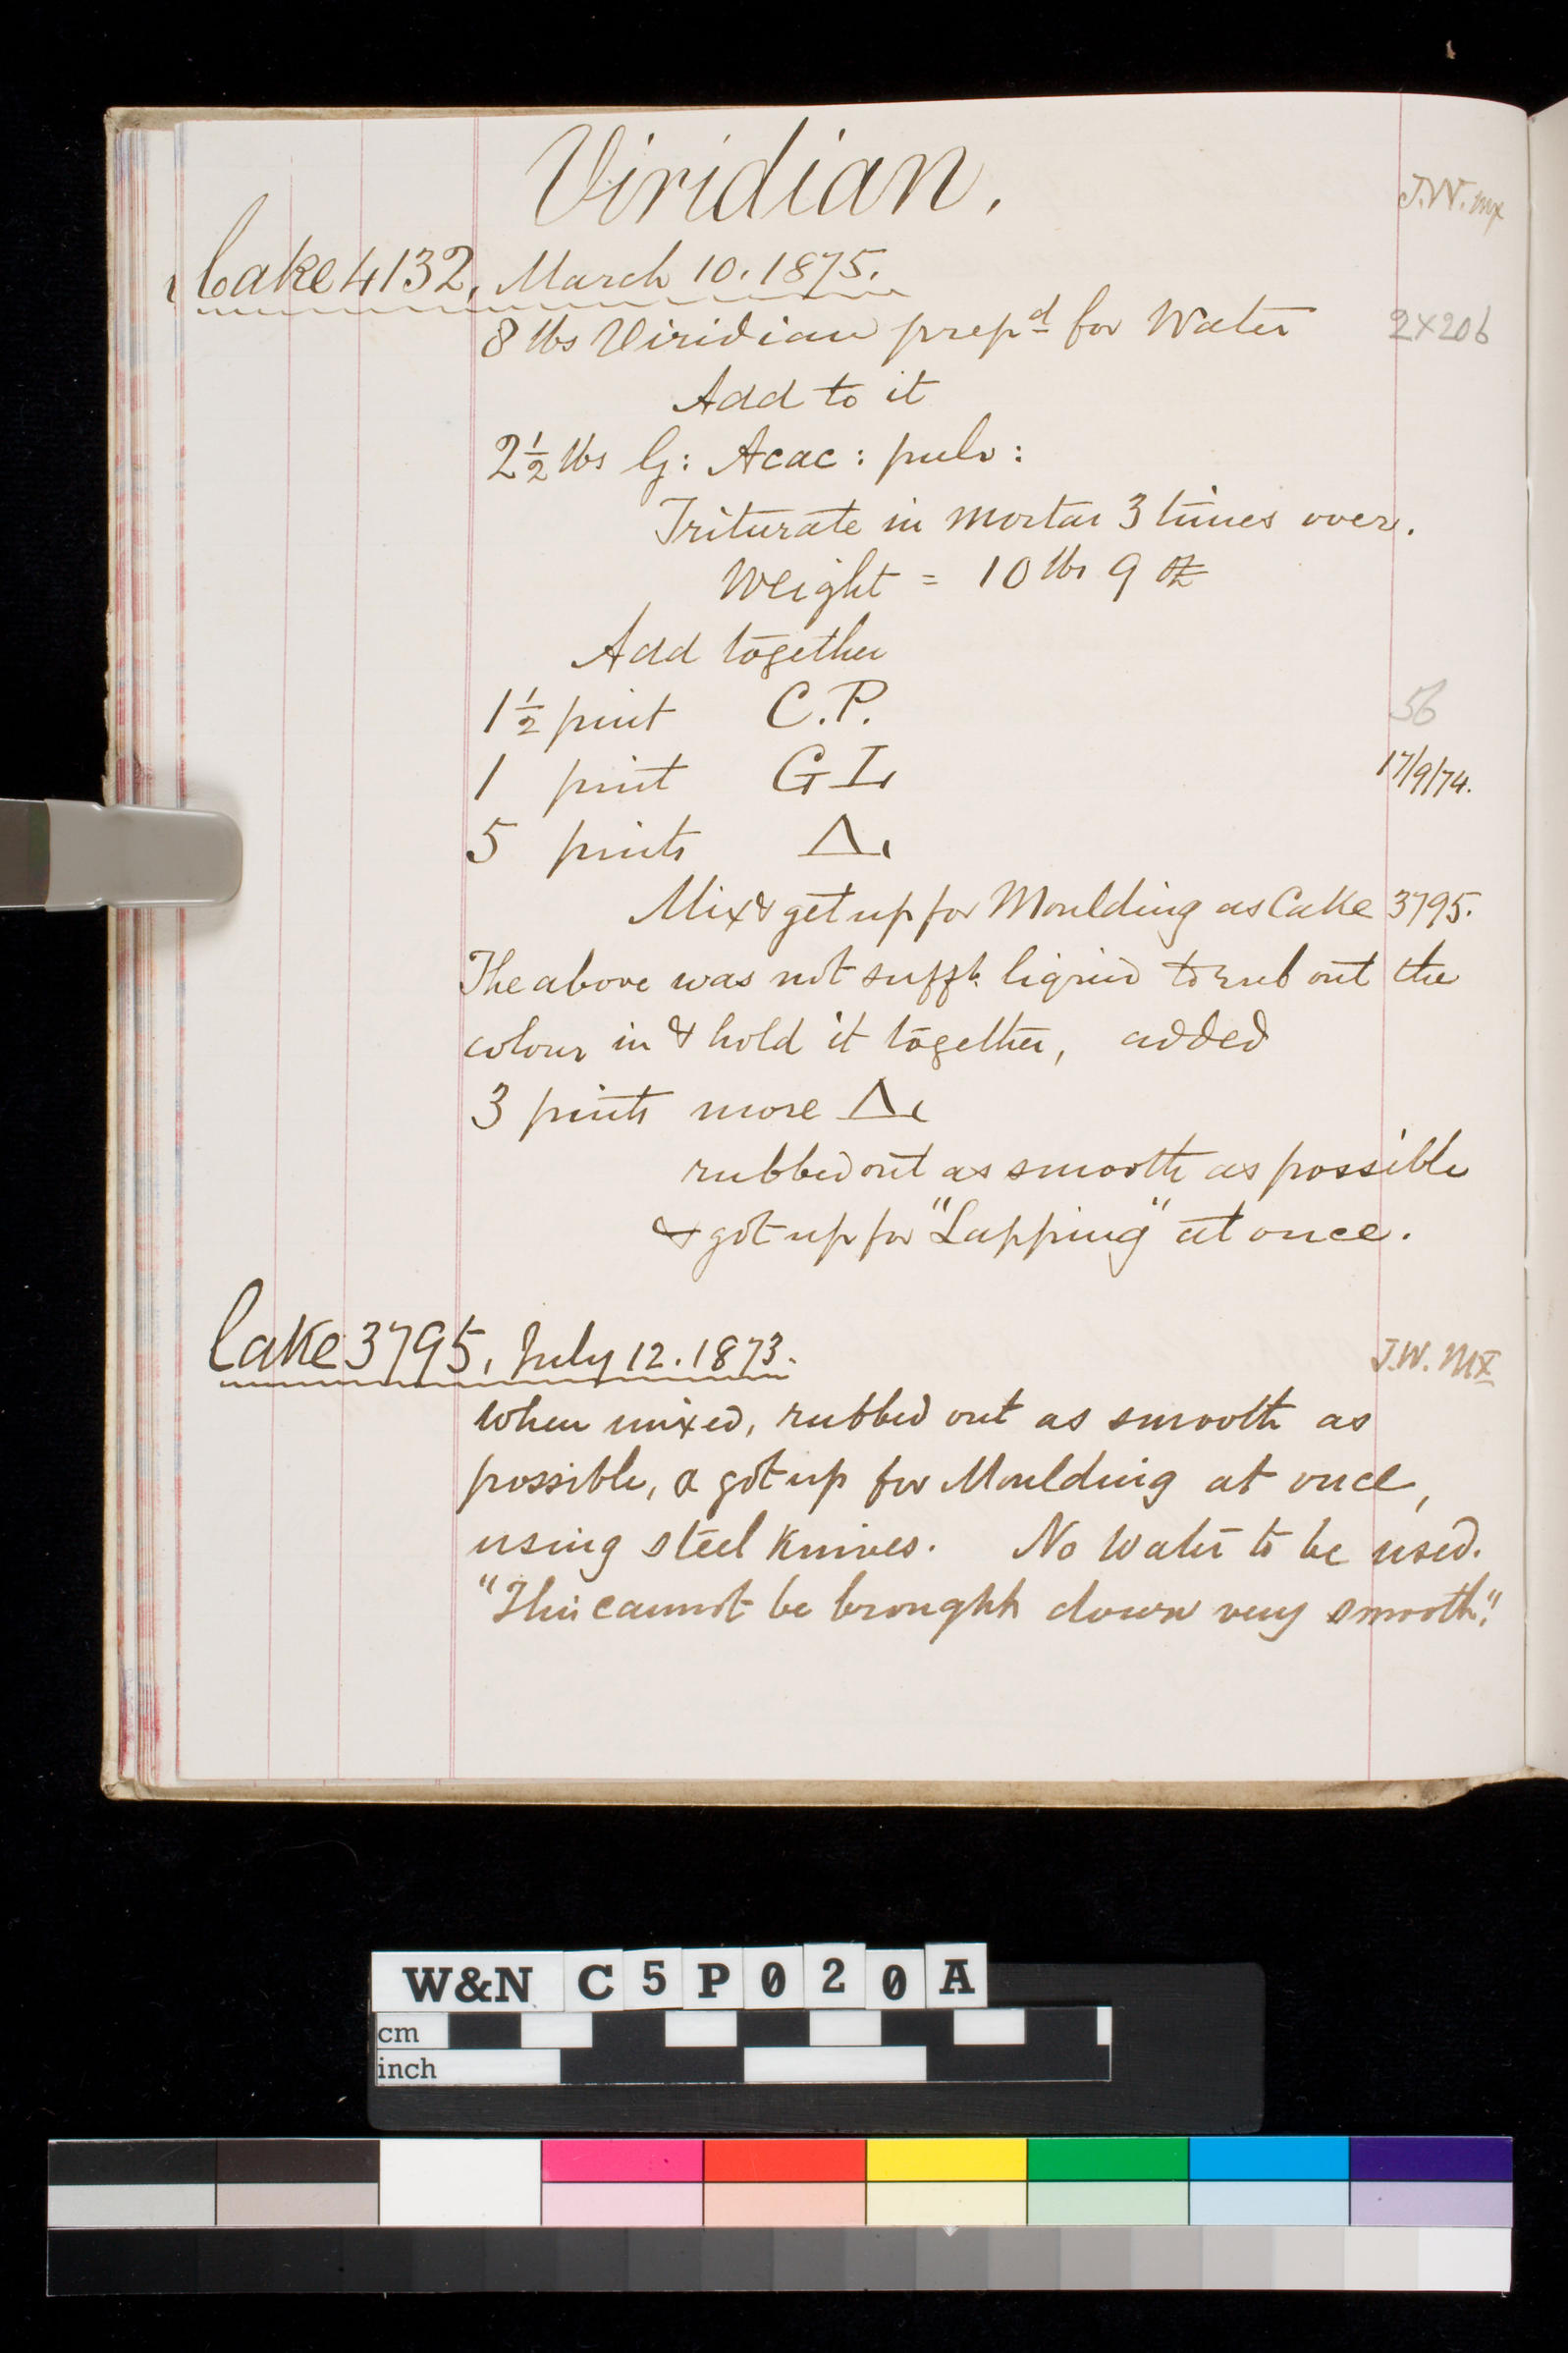 Viridian.
J.W. mx
Cake 4132, March 10. 1875.
8 lbs Viridian prepd for Water 2x206
Add to it
2½ lbs G: Acac: pulv:
Triturate in mortar 3 times over.
Weight = 10 lbs 9 oz
Add together
1½ pint C.P. 56
1 pint GL 17/9/74.
5 pints Δ
Mix & get up for Moulding as Cake 3795.
The above was not sufft. liquid to rub out the
colour in & hold it together, added
3 pints more Δ
rubbed out as smooth as possible
& got up for "Lapping" at once.
Cake 3795, July 12. 1873.
J.W. Mx
When mixed, rubbed out as smooth as
possible, & got up for Moulding at once,
using steel knives. No Water to be used.
"This cannot be brought down very smooth."
W&N C5P020A
cm
inch